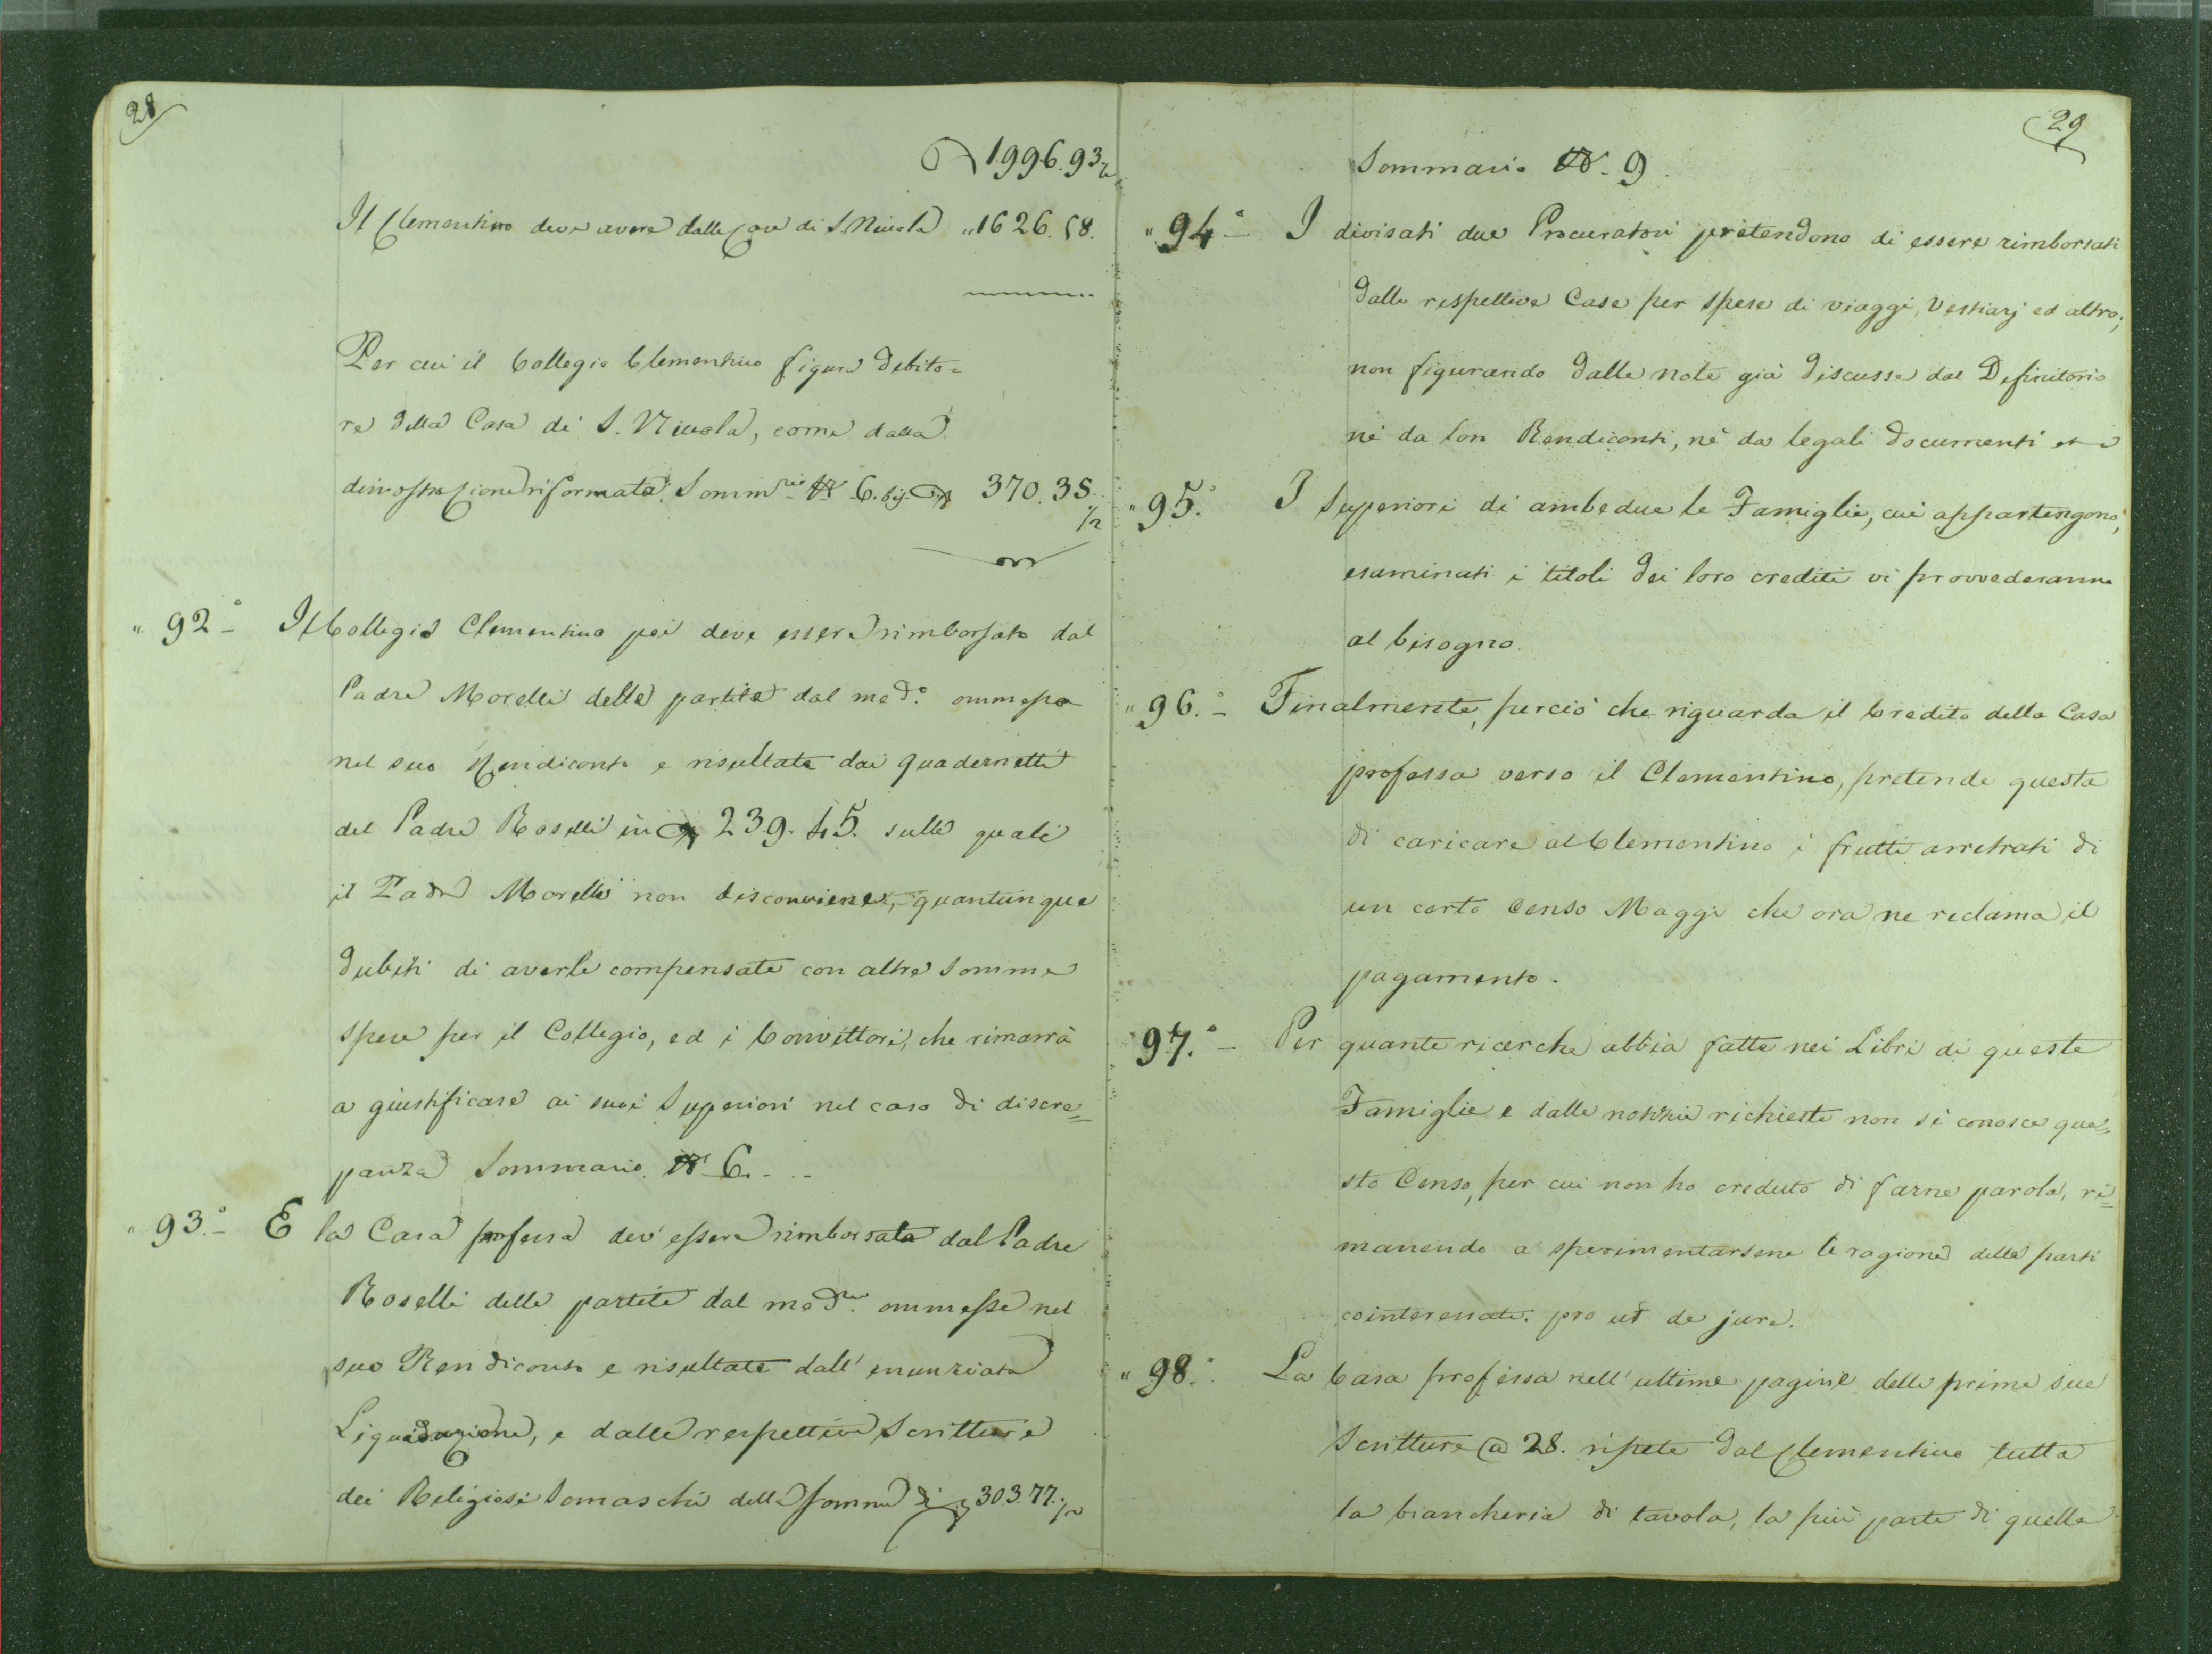 28
1996.93 ½
Il Clementino deve avere dalla Casa di S. Nicola " 1626.58.
Per cui il Collegio Clementino figura debito=
re della Casa di S. Nicola, come dalla
dimostrazione riformata. Somm.rio N. 6. bis. 370.35. ½
" 92.° Il Collegio Clementino poi deve essere rimborsato dal
Padre Morelli delle partite dal med.° ommesse
nel suo Rendiconto e risultate dai quadernetti
del Padre Roselli in 239.45. sulle quali
il Padre Morelli non disconviene, quantunque
dubiti di averle compensate con altre somme
spese per il Collegio, ed i Convittori, che rimarrà
a giustificare ai suoi Superiori nel caso di discre=
panza Sommario N. 6. - -
" 93.° E la Casa professa dev'essere rimborsata dal Padre
Roselli delle partite dal med.mo ommesse nel
suo Rendiconto e risultate dall'enunziata
Liquidazione, e dalle respettive Scritture
dei Religiosi Somaschi della somma di 303.77. ½
29
Sommario N. 9.
" 94.° I divisati due Procuratori pretendono di essere rimborsati
dalle respettive Case per spese di viaggi, Vestiarj ed altro;
non figurando dalle note già discusse dal Definitorio
nè da loro Rendiconti, nè da legali documenti
" 95.° I Superiori di ambedue le Famiglie, cui appartengono,
esaminati i titoli dei loro crediti vi provvederanno
al bisogno.
" 96.° Finalmente, perciò che riguarda il Credito della Casa
professa verso il Clementino, pretende questa
di caricare al Clementino i frutti arretrati di
un certo Censo Maggi che ora ne reclama il
pagamento.
" 97.° Per quante ricerche abbia fatte nei Libri di queste
Famiglie e dalle notizie richieste non si conosce que=
sto Censo, per cui non ho creduto di farne parola, ri=
manendo a sperimentarsene le ragioni delle parti
cointeressate. pro ut de jure.
" 98.° La Casa professa nell'ultime pagine delle prime sue
Scritture a 28. ripete dal Clementino tutta
la biancheria di tavola, la più parte di quella